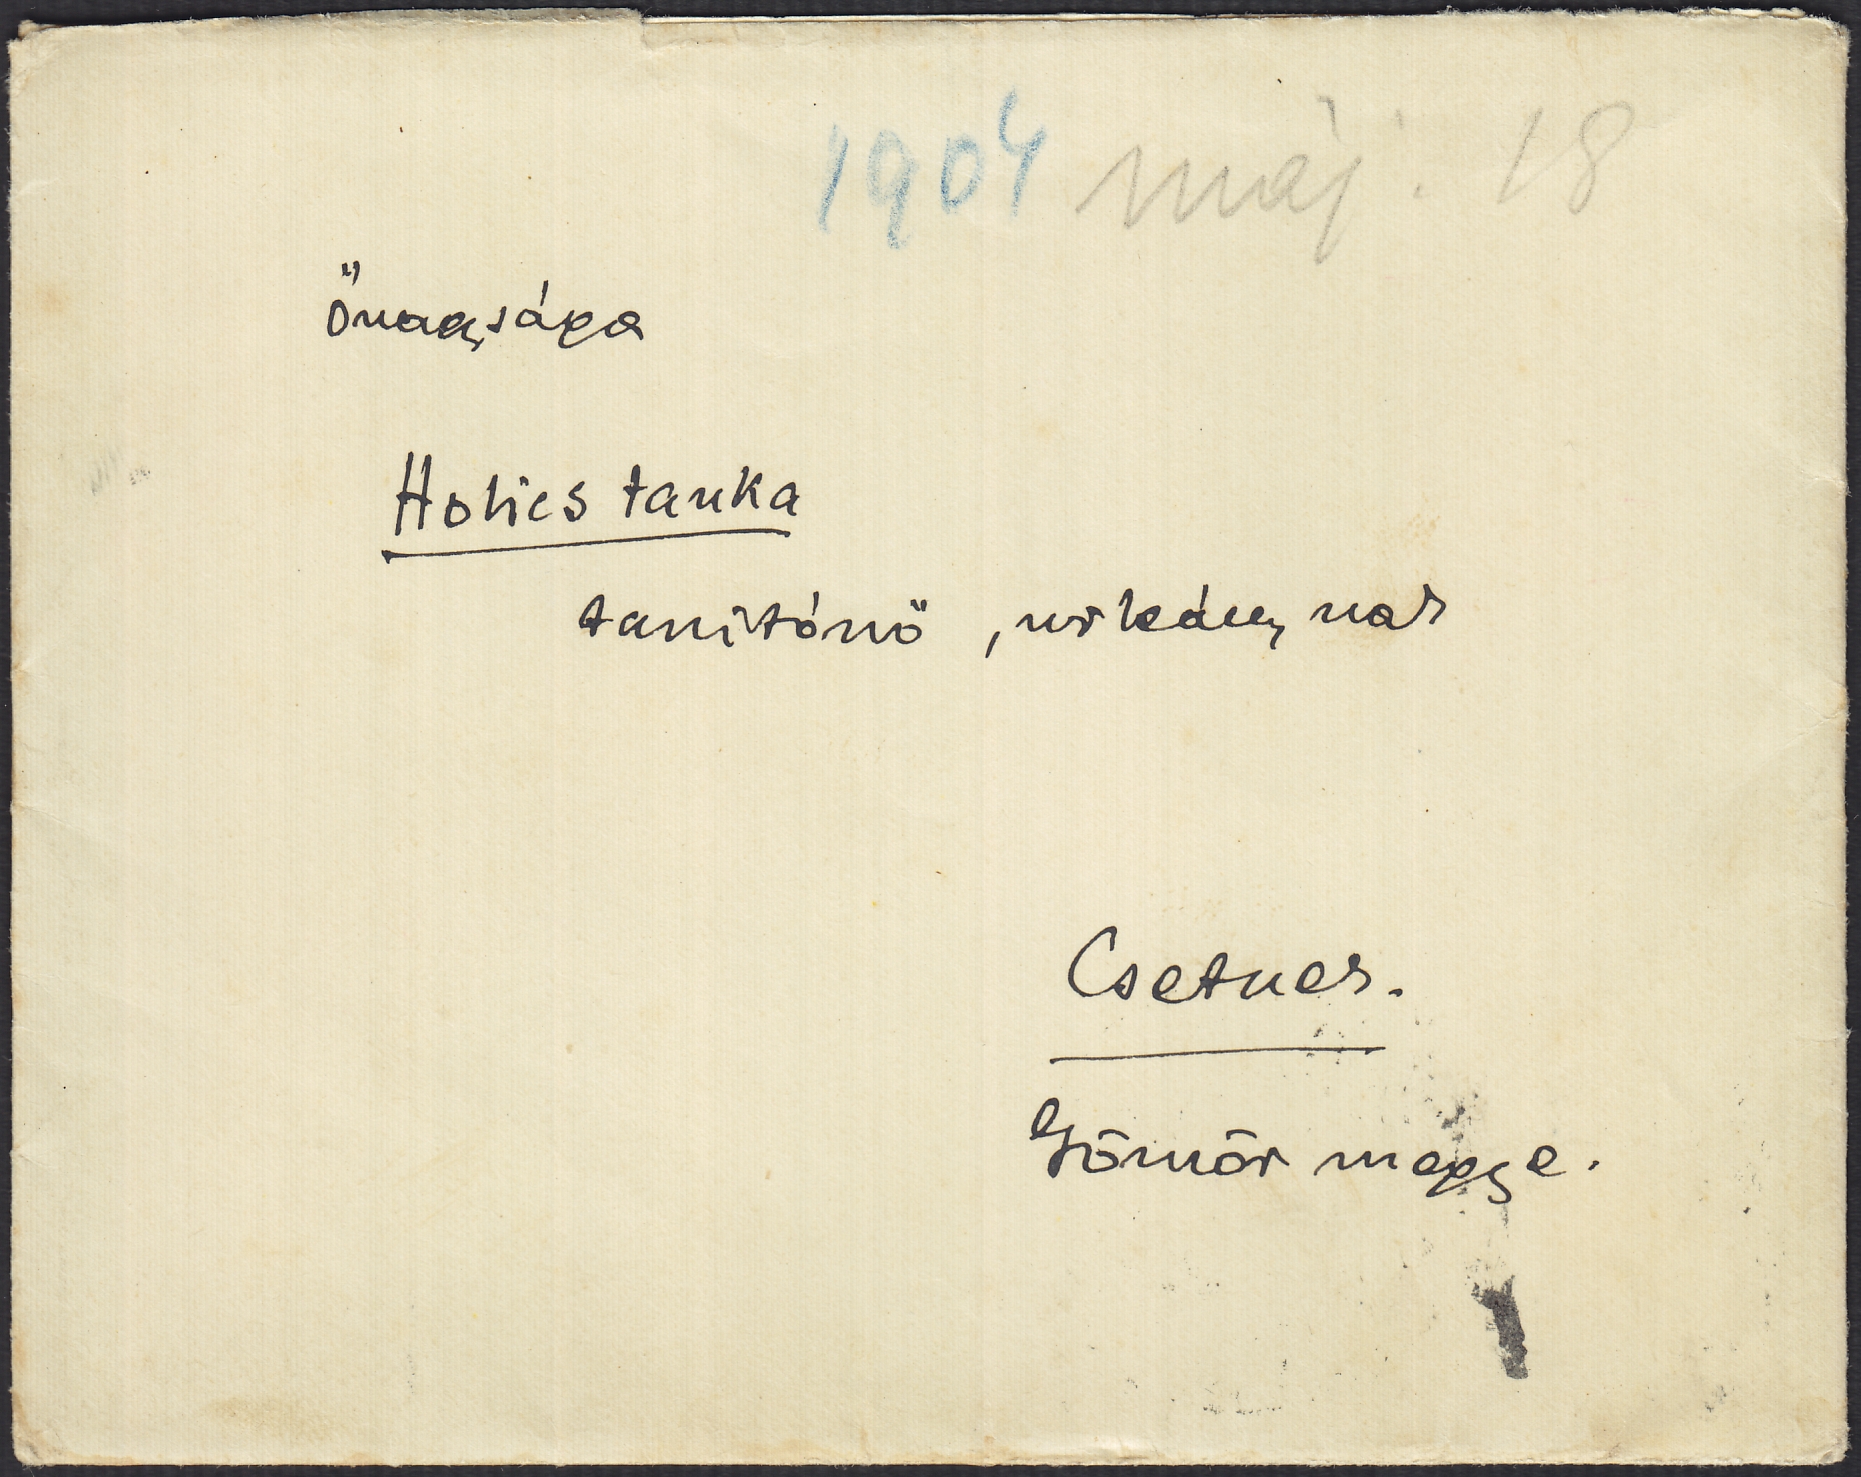 1904 máj. 18
Őnagysága
Holics Janka
tanítónő, urleány nak
Csetnek.
Gömör megye.